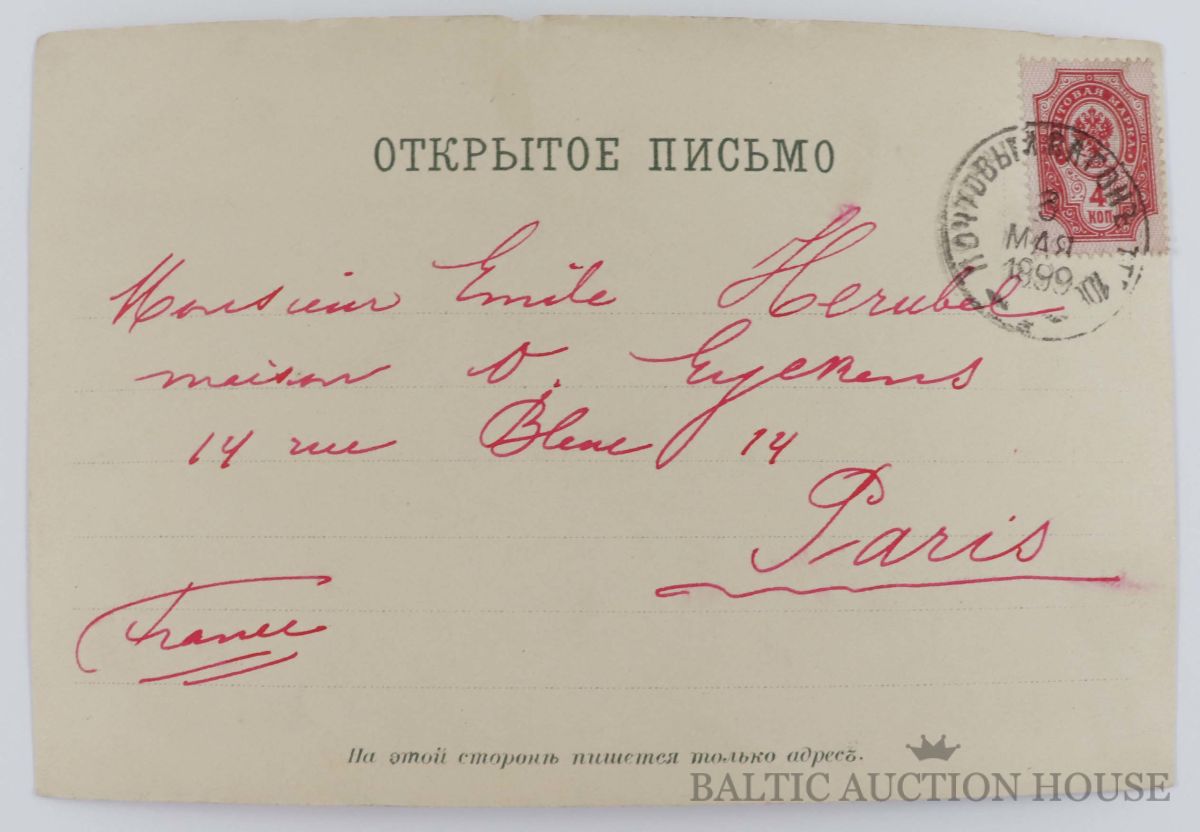 ОТКРЫТОЕ ПИСЬМО
ПОЧТОВАЯ МАРКА
4
КОП
ПОЧТОВЫЙ ВАГОНЪ
МАЯ
1899
Monsieur Emile Herubel
maison D. Eyckens
14 rue Bleue 14
Paris
France
На этой сторонѣ пишется только адресъ.
BALTIC AUCTION HOUSE